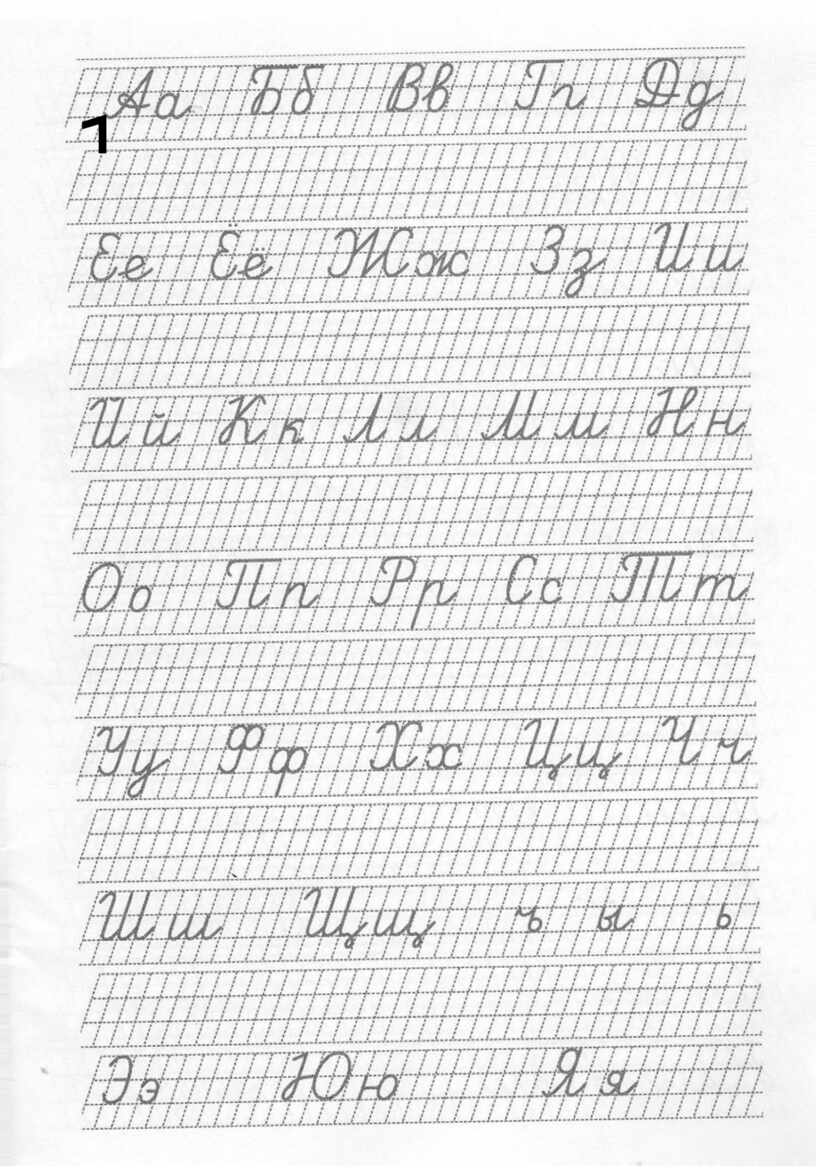 Аа Бб Вв Гг Дд
1
Ее Ёё Жж Зз Ии
Йй Кк Лл Мм Нн
Оо Пп Рр Сс Тт
Уу Фф Хх Цц Чч
Шш Щщ ъ ы ь
Ээ Юю Яя